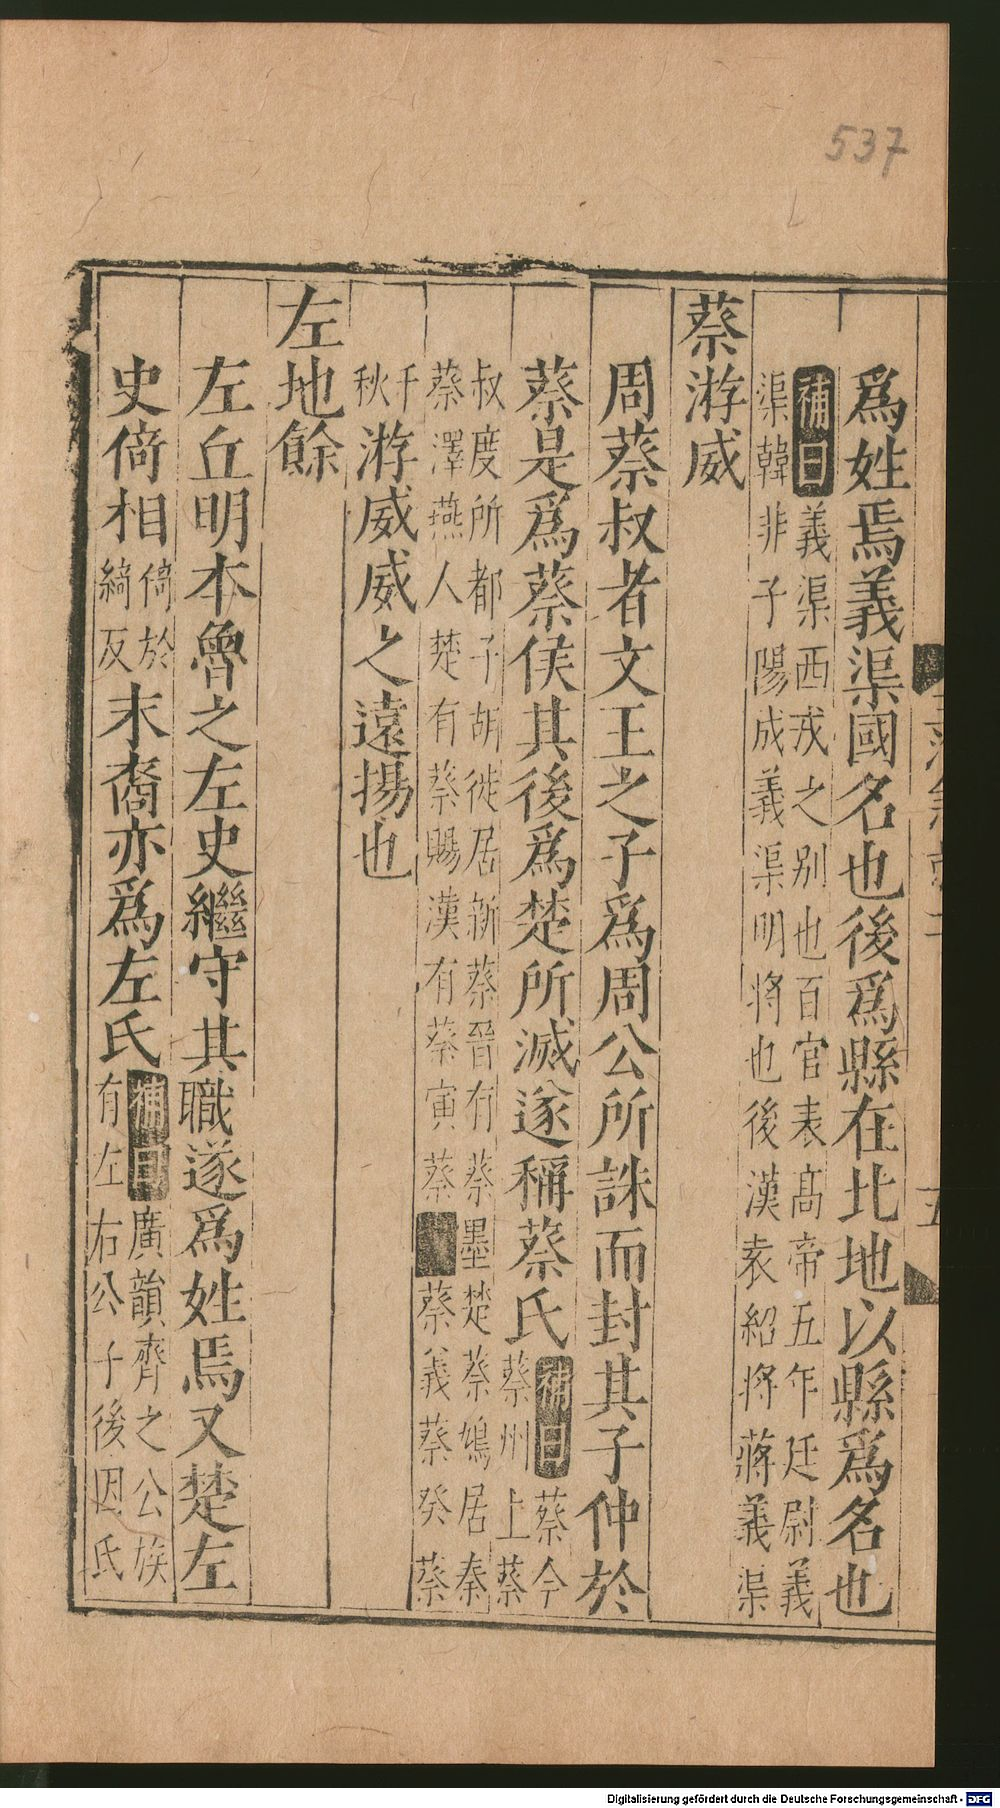 537
爲姓焉義渠國名也後爲縣在北地以縣爲名也
補曰義渠西戎之别也百官表髙帝五年廷尉義
渠韓非子陽成義渠明將也後漢袁紹將蔣義渠
蔡游威
周蔡叔者文王之子爲周公所誅而封其子仲於
蔡是爲蔡侯其後爲楚所滅遂稱蔡氏補曰蔡今
蔡州上蔡
叔度所都子胡徙居新蔡晉有蔡墨楚蔡鳩居秦
蔡澤燕人楚有蔡賜漢有蔡寅蔡蔡義蔡癸蔡
千
秋游威威之遠揚也
左地餘
左丘明本魯之左史繼守其職遂爲姓焉又楚左
史倚相倚於
綺反末裔亦爲左氏補曰廣韻齊之公族
有左右公子後因氏
五
Digitalisierung gefördert durch die Deutsche Forschungsgemeinschaft - DFG